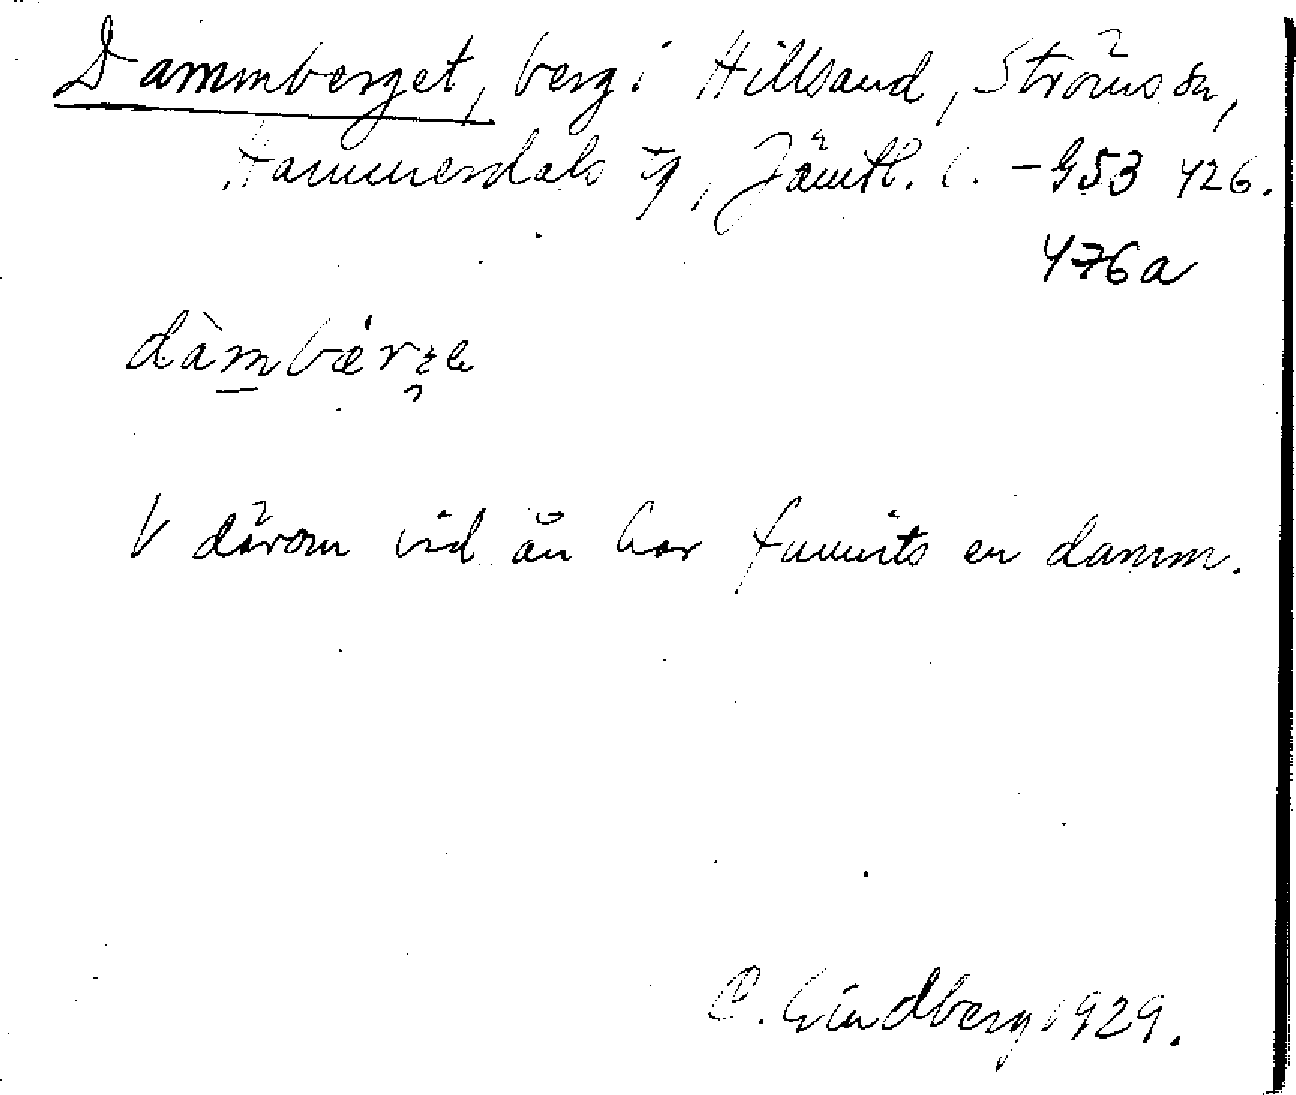 Dammberget, berg i Hillsand, Ströms sn,
Hammerdals tg, Jämtl. l. - G53 Y26.
Y76a
dàmbærge
V därom vid ån har funnits en damm.
C. Lindberg 1929.